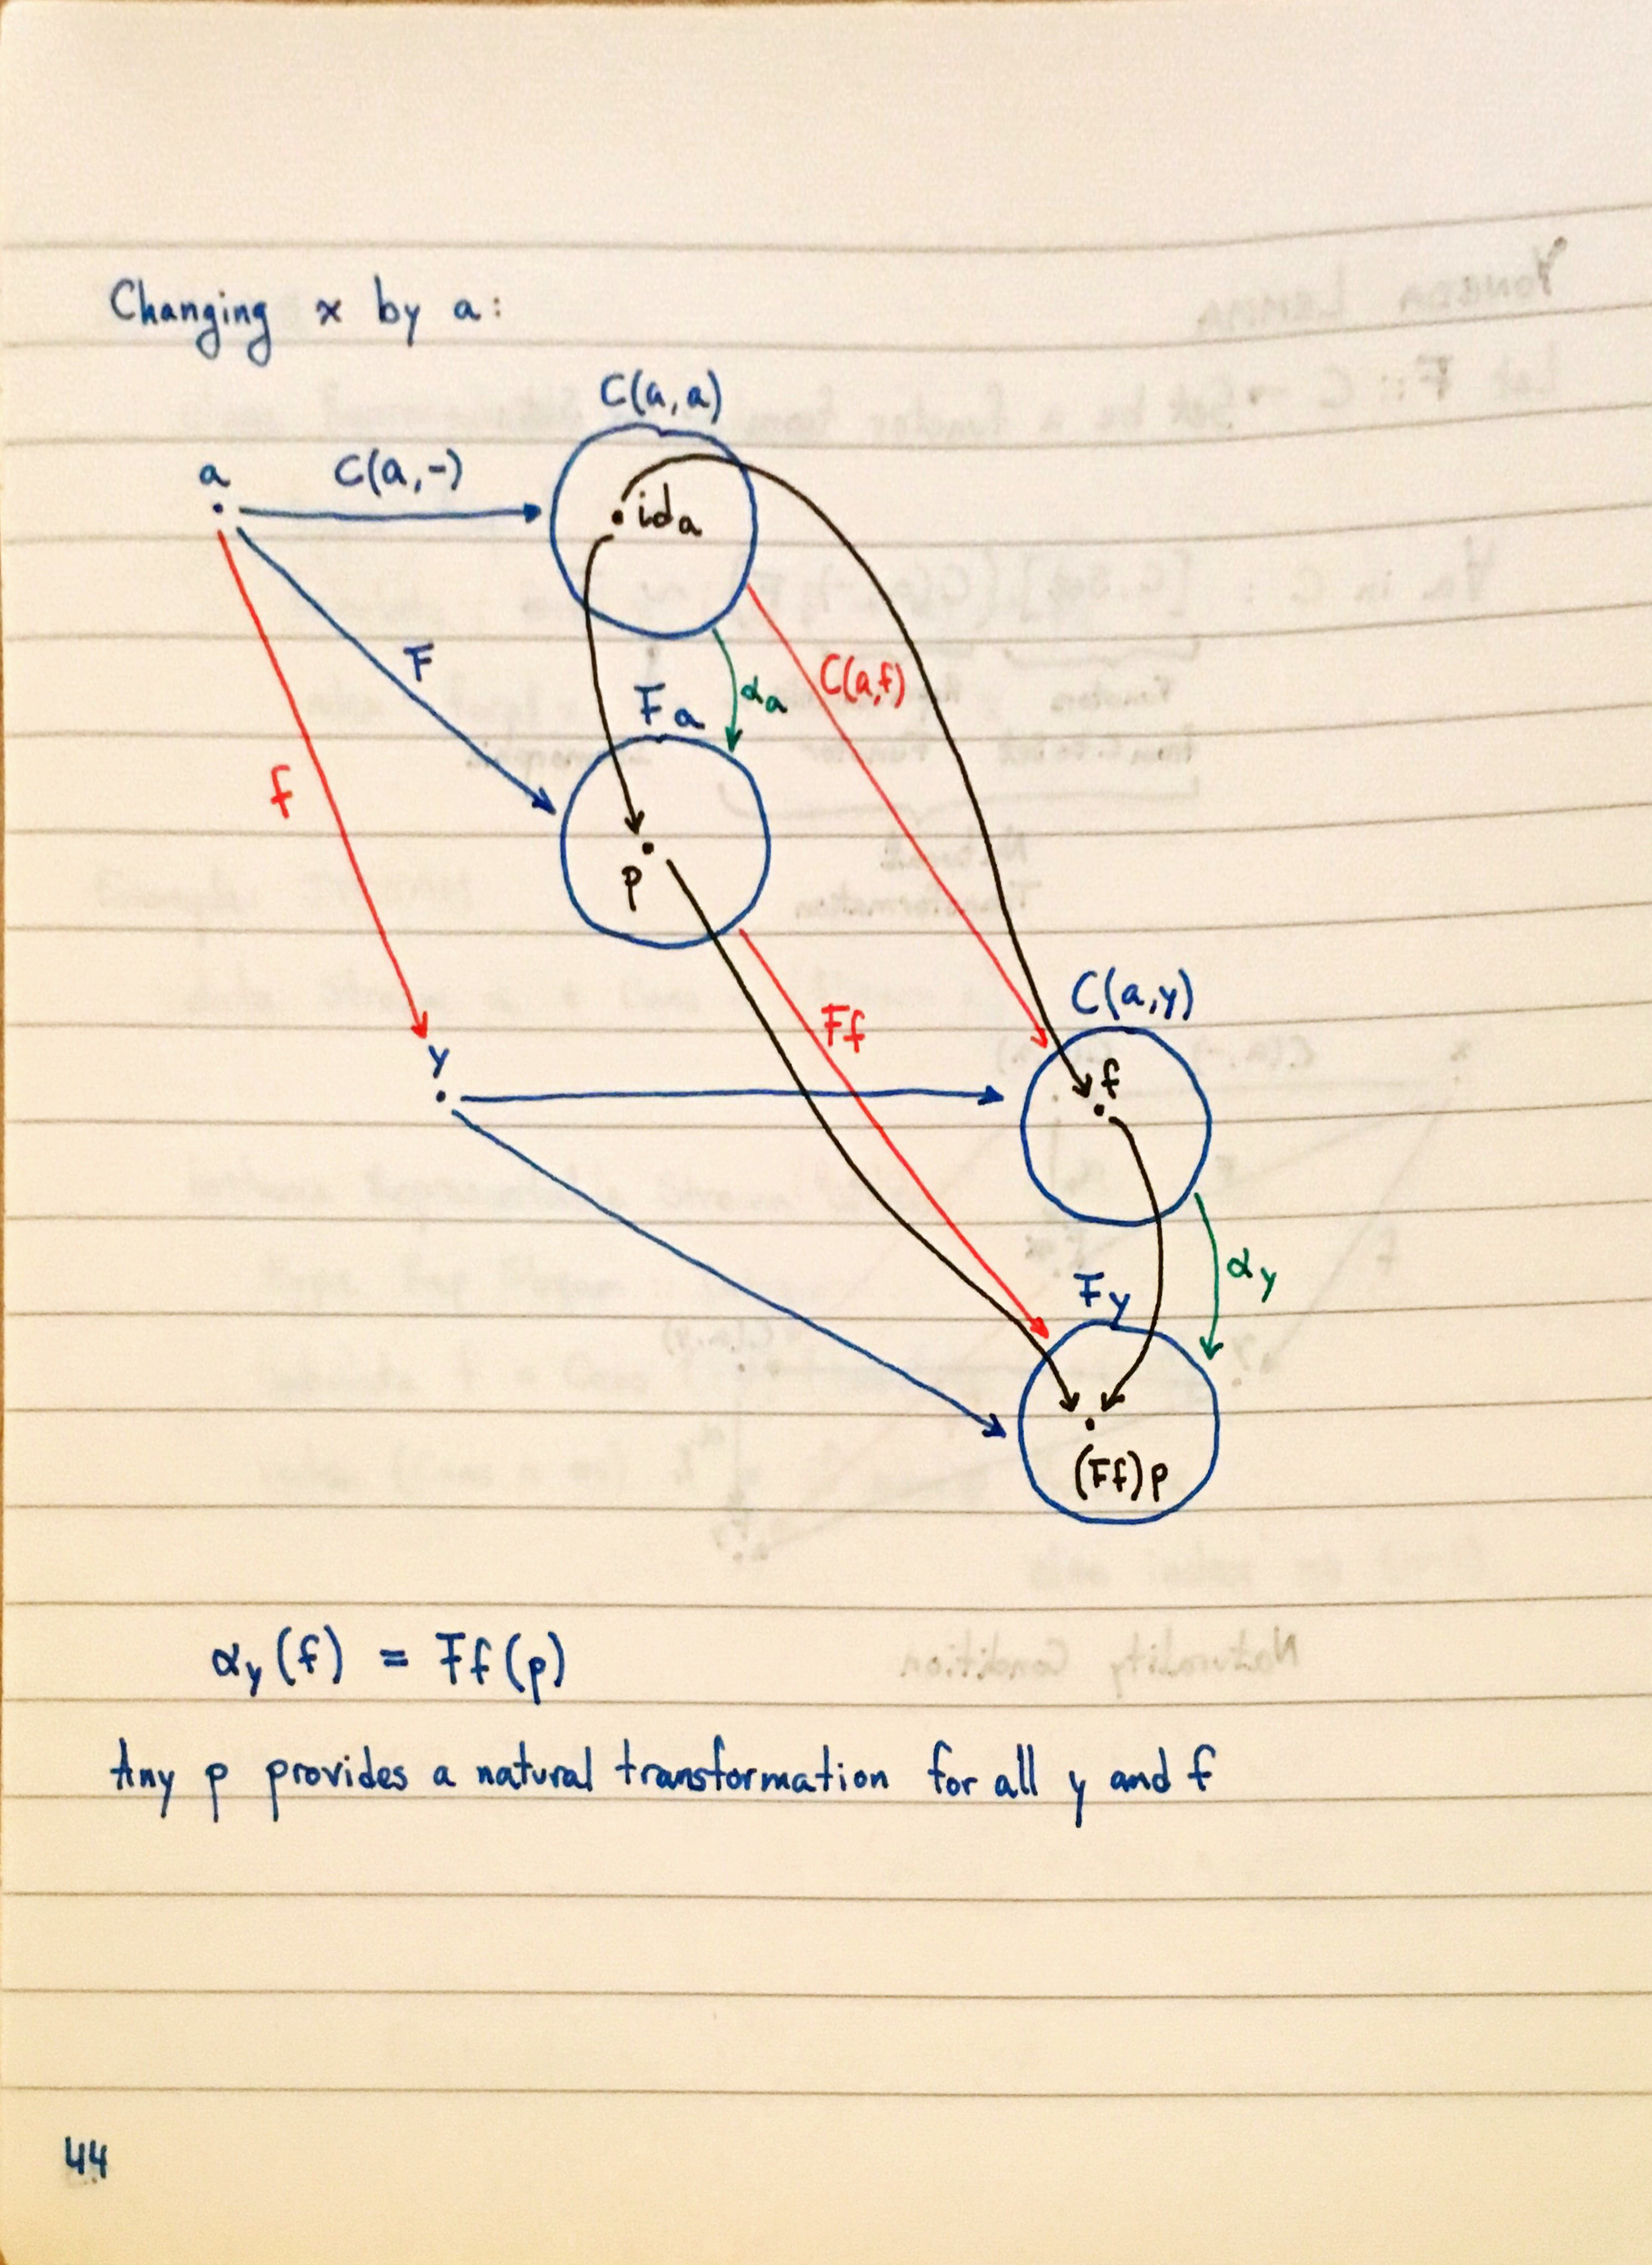 Changing x by a:
C(a,a)
a
C(a,-)
ida
F
Fa
αa
C(a,f)
f
p
Ff
C(a,y)
y
f
Fy
αy
(Ff)p
αy(f) = Ff(p)
Any p provides a natural transformation for all y and f
44